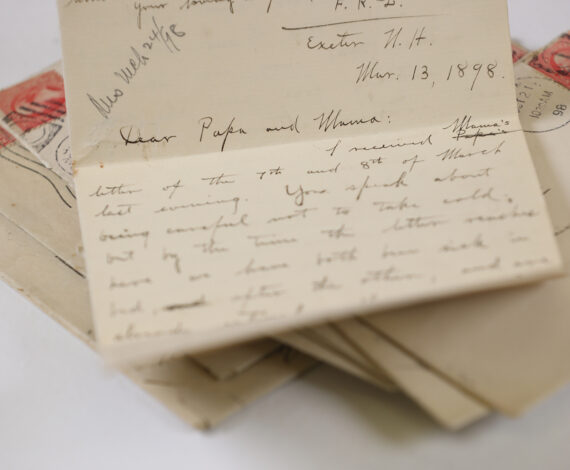 Your loving
F. R. L.
Ans Mch 24/98
Exeter N. H.
Mar. 13, 1898.
Dear Papa and Mama:
I received Mama's
Papa's
letter of the 7th and 8th of March
last evening. You speak about
being careful not to take cold,
but by the time the letter reaches
have we have both been sick in
bed, and after the other, and are
already
21
10 30 AM
98